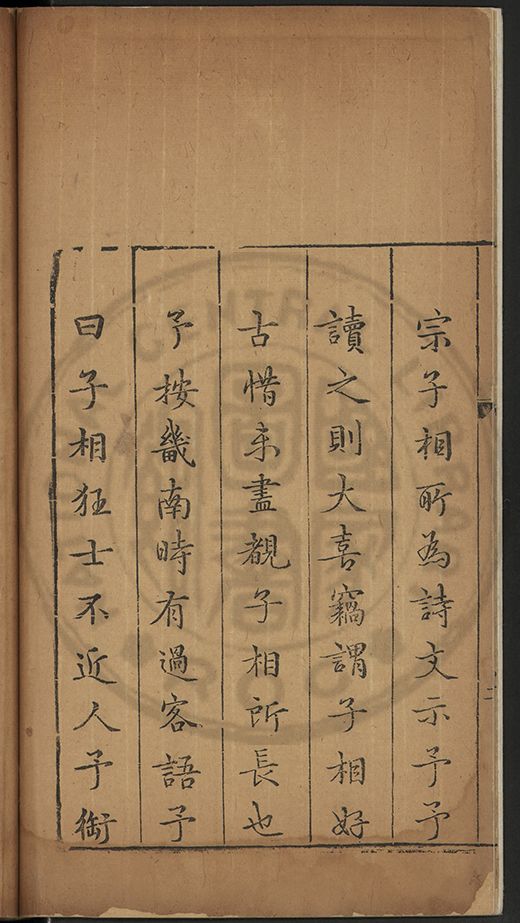 宗子相所為詩文示予予
讀之則大喜竊謂子相好
古惜未盡覩子相所長也
予按畿南時有過客語予
曰子相狂士不近人予銜